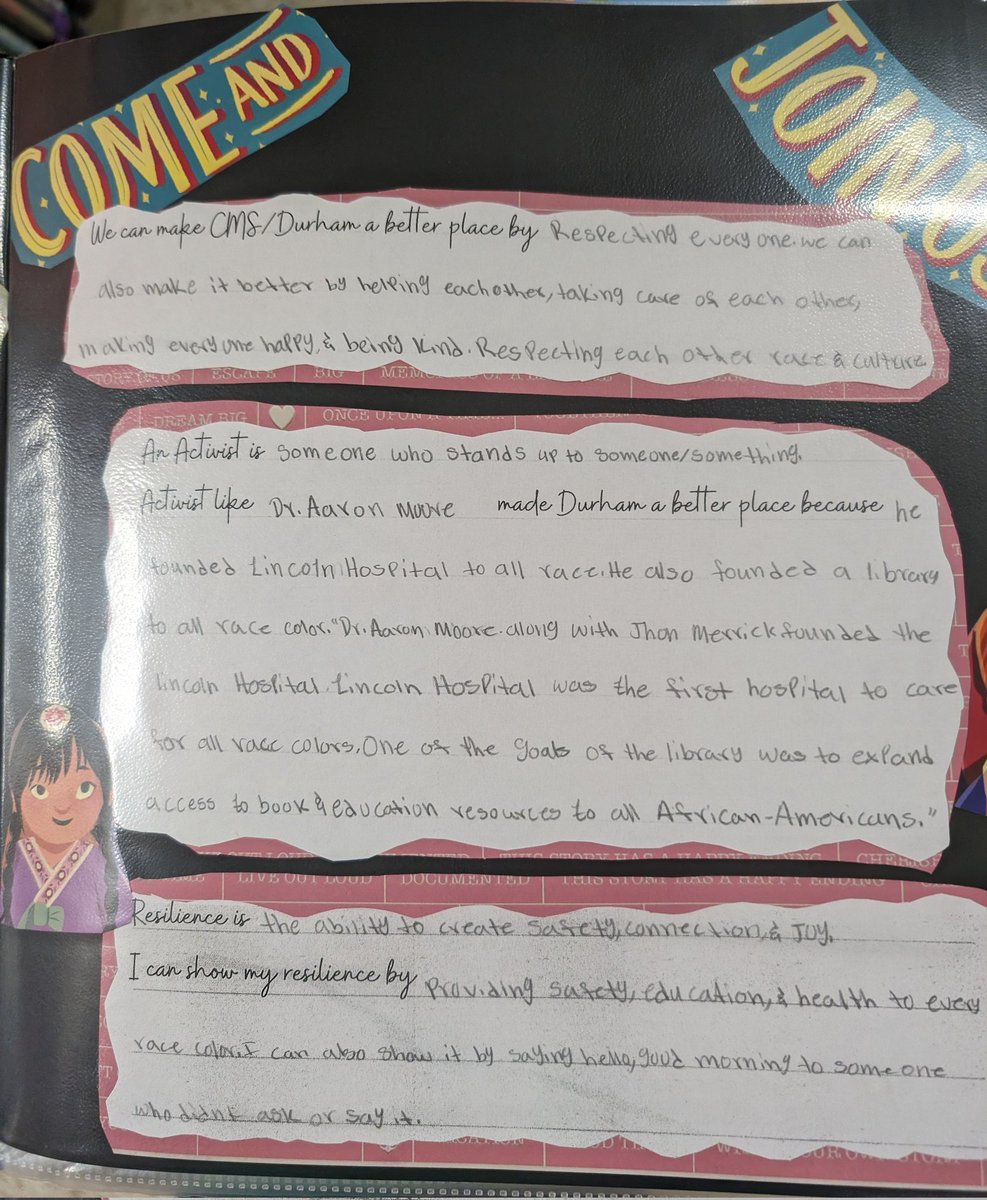 COME AND
JOIN US
We can make CMS/Durham a better place by Respecting everyone. we can
also make it better by helping eachother, taking care of each other,
making everyone happy, & being kind. Respecting each other race & culture
ESCAPE | BIG
DREAM BIG ONCE UPON A
An Activist is someone who stands up to someone/something.
Activist like Dr. Aaron Moore made Durham a better place because he
founded Lincoln Hospital to all race. He also founded a library
to all race color. "Dr. Aaron Moore. along with Jhon Merrick founded the
Lincoln Hospital. Lincoln Hospital was the first hospital to care
for all race colors. One of the goals of the library was to expand
access to book & education resources to all African-Americans."
LIVE OUT LOUD | DOCUMENTED | THIS STORY HAS A HAPPY ENDING
Resilience is the ability to create safety, connection, & Joy.
I can show my resilience by Providing safety, education, & health to every
race color. I can also show it by saying hello, good morning to someone
who didnt ask or say it.